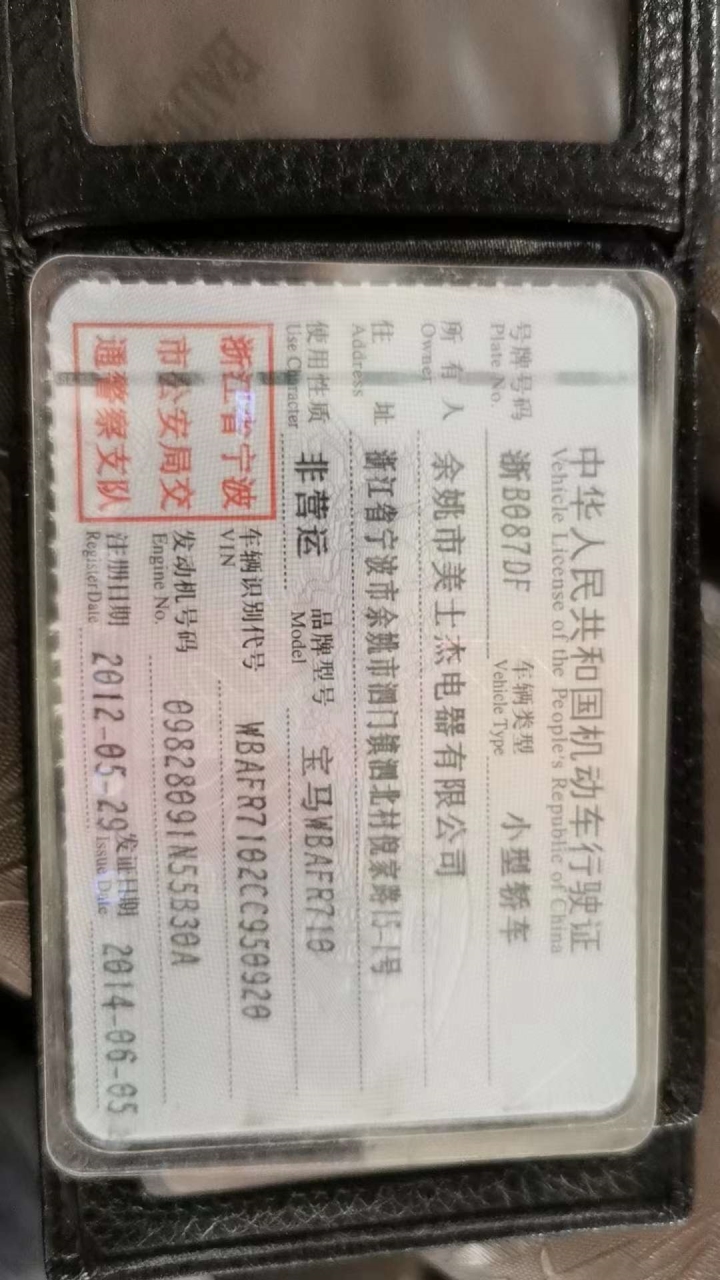 中华人民共和国机动车行驶证
Vehicle License of the People's Republic of China
号牌号码 浙B087DF 车辆类型 小型轿车
Plate No. Vehicle Type
所有人 余姚市美士杰电器有限公司
Owner
住址 浙江省宁波市余姚市泗门镇泗北村倪家路15-1号
Address
使用性质 非营运 品牌型号 宝马WBAFR710
Use Character Model
浙江省宁波市公安局交通警察支队
车辆识别代号 WBAFR7102CC950920
VIN
发动机号码 09828091N55B30A
Engine No.
注册日期 2012-05-29 发证日期 2014-06-05
Register Date Issue Date